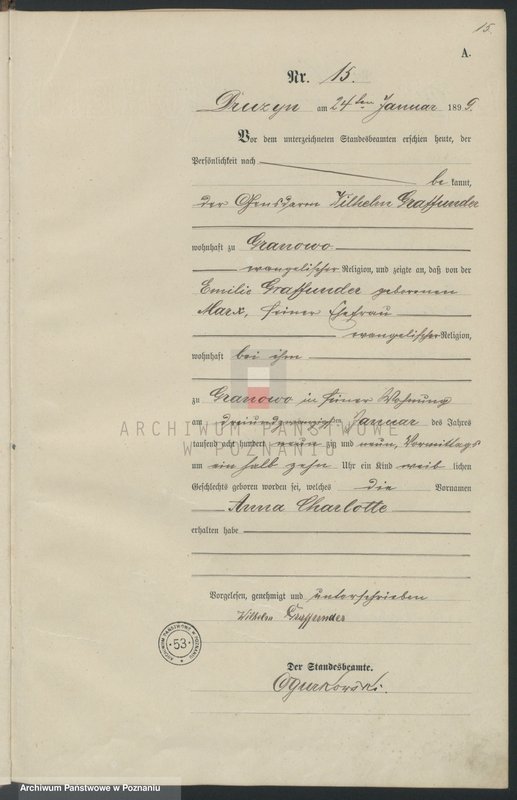 15.
A.
Nr. 15.
Druzyn am 24ten Januar 1899.
Vor dem unterzeichneten Standesbeamten erschien heute, der
Persönlichkeit nach
be kannt,
der Gensdarm Wilhelm Graffunder
wohnhaft zu Granowo
evangelischer Religion, und zeigte an, daß von der
Emilie Graffunder geborenen
Marx, seiner Ehefrau
evangelischer Religion,
wohnhaft bei ihm
zu Granowo in seiner Wohnung
am dreiundzwanzigsten Januar des Jahres
tausend acht hundert neun zig und neun, Vormittags
um ein halb zehn Uhr ein Kind weib lichen
Geschlechts geboren worden sei, welches die Vornamen
Anna Charlotte
erhalten habe
Vorgelesen, genehmigt und unterschrieben
Wilhelm Graffunder
Der Standesbeamte.
Ogurkowski.
ARCHIWUM PAŃSTWOWE
W POZNANIU
ARCHIWUM PAŃSTWOWE W POZNANIU
53
Archiwum Panstwowe w Poznaniu